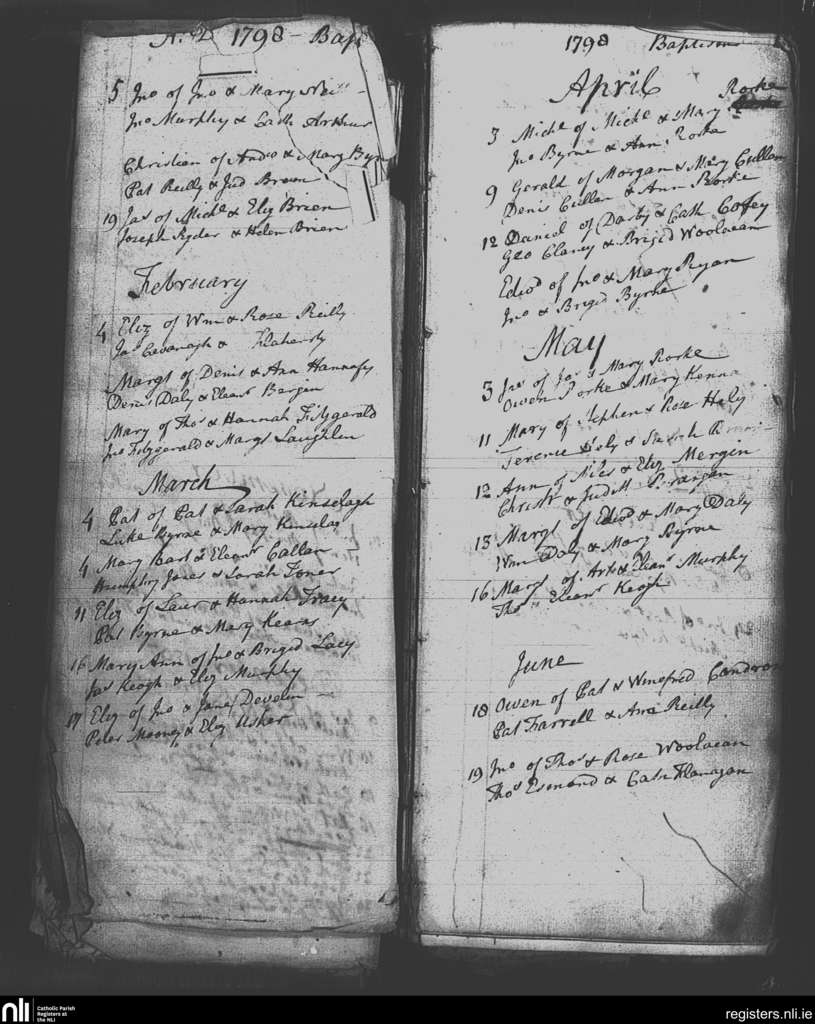 A: D 1798 - Bap
5 Jno of Jno & Mary
Jno Murphy & Cath Arthur
Christian of Andw & Mary Byrn
Pat Reilly & Jud Breen
19 Jas of Michl & Eliz Brien
Joseph Ryder & Helen Brien
February
4 Eliz of Wm & Rose Reilly
Jas Cavanagh & Flaherty
Margt of Denis & Ann Hannafy
Denis Daly & Eleanr Bergin
Mary of Thos & Hannah Fitzgerald
Jno Fitzgerald & Margt Laughlin
March
4 Pat of Pat & Sarah Kinselagh
Luke Byrne & Mary Kinselag
4 Mary Bart & Eleanr Callan
Humphry Jones & Sarah Toner
11 Eliz of Laur & Hannah Tracy
Pat Byrne & Mary Kearns
16 Mary Ann of Jno & Brigid Lacy
Jas Keogh & Eliz Murphy
17 Eliz of Jno & Jane Develin
Peter Mooney & Eliz Usher
1798 Baptisms
April
3 Michl of Michl & Mary Rorke
Jno Byrne & Ann Rorke
9 Gerald of Morgan & Mary Cullen
Denis Cullen & Ann Rorke
12 Daniel of Darby & Cath Cofey
Geo Clancy & Brigid Woolacan
Edwd of Jno & Mary Ryan
Jno & Brigid Byrne
May
3 Jas of Jas & Mary Rorke
Owen Rorke & Mary Kenna
11 Mary of Stephen & Rose Haly
Terence Daly & Sarah
12 Ann of Niles & Eliz Mergin
Christr & Judith Brangan
13 Margt of Edwd & Mary Daly
Wm Daly & Mary Byrne
16 Margt of Arth & Eleanr Murphy
Thos Eleanr Keogh
June
18 Owen of Pat & Winefred Condron
Pat Farrell & Ann Reilly
19 Jno of Thos & Rose Woolacan
Thos Esmond & Cath Flanagan
nli Catholic Parish
Registers at
the NLI
registers.nli.ie